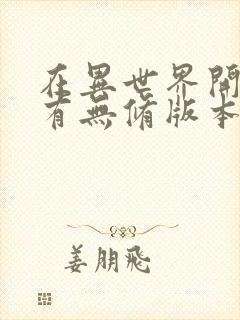 在異世界開
有無脩版本
姜朋飛